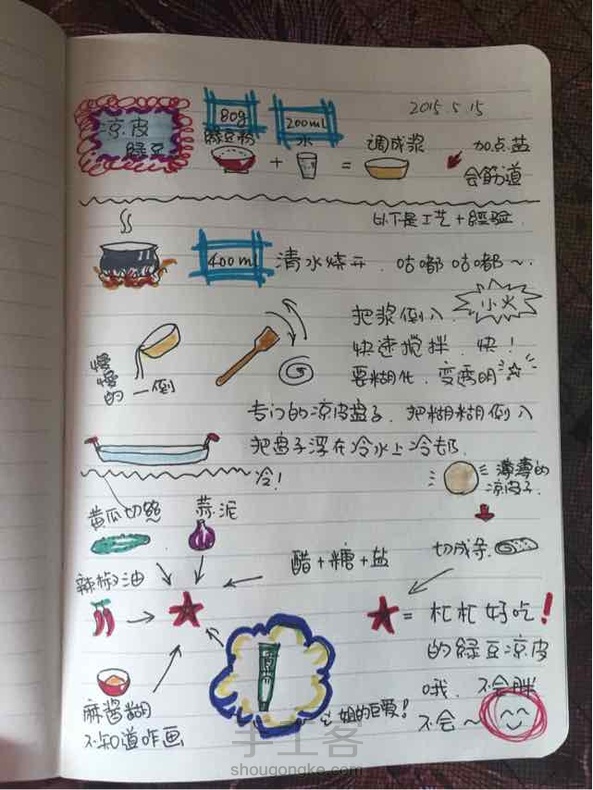 2015.5.15
凉皮
綠豆
80g
綠豆粉
+
200ml
水
=
调成浆
加点盐
会筋道
以下是工艺+經验.
400ml
清水烧开.咕嘟咕嘟~.
把浆倒入.
小火
快速搅拌.快!
要糊化.变透明
慢慢的一倒
专门的凉皮盘子.把糊糊倒入
把盘子浮在冷水上冷却.
冷!
薄薄的
凉皮子.
黄瓜切
蒜泥
醋+糖+盐
切成条.
辣椒油
= 杠杠好吃!
的綠豆凉皮
哦.不会胖
不会~
麻酱糊
不知道咋画
姐的巨爱!
手工客
shougongke.com